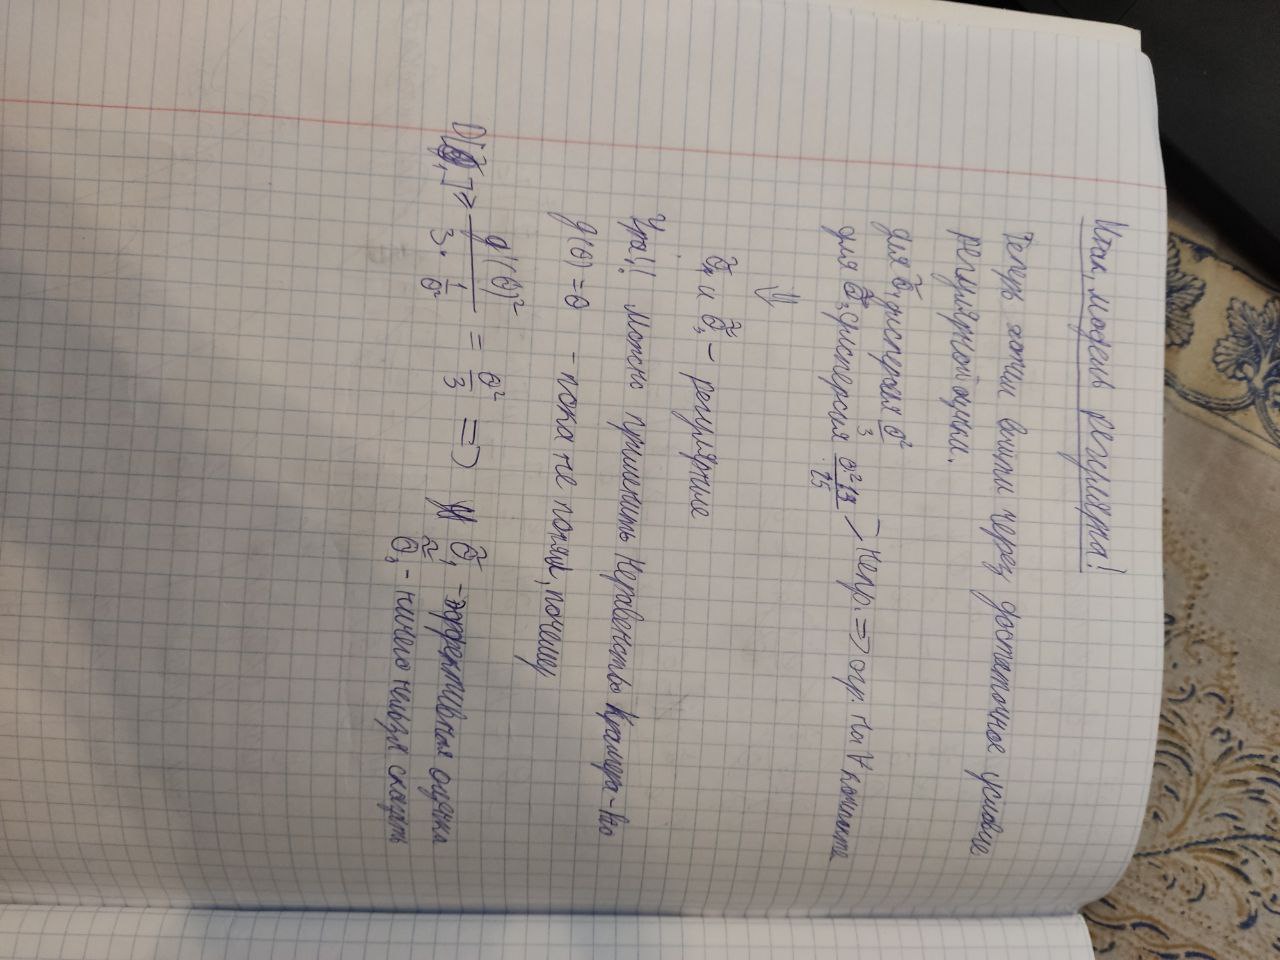 Итак, модель регулярна!
Теперь хотим выйти через достаточное условие
регулярной оценки.
для θ̃₁ дисперсия θ²/3
для θ̃₃ дисперсия θ²·19/25 > непр. ⇒ огр. на ∀ компакте
⇓
и θ̃₃ – регулярные
Ура!! Можно применить Неравенство Крамера-Рао
g(θ) = θ – пока не понял, почему
D[θ̃₁] ≥ g'(θ)²/(3·1/θ²) = θ²/3 ⇒ θ̃₁ – эффективная оценка
θ̃₃ – ничего нельзя сказать